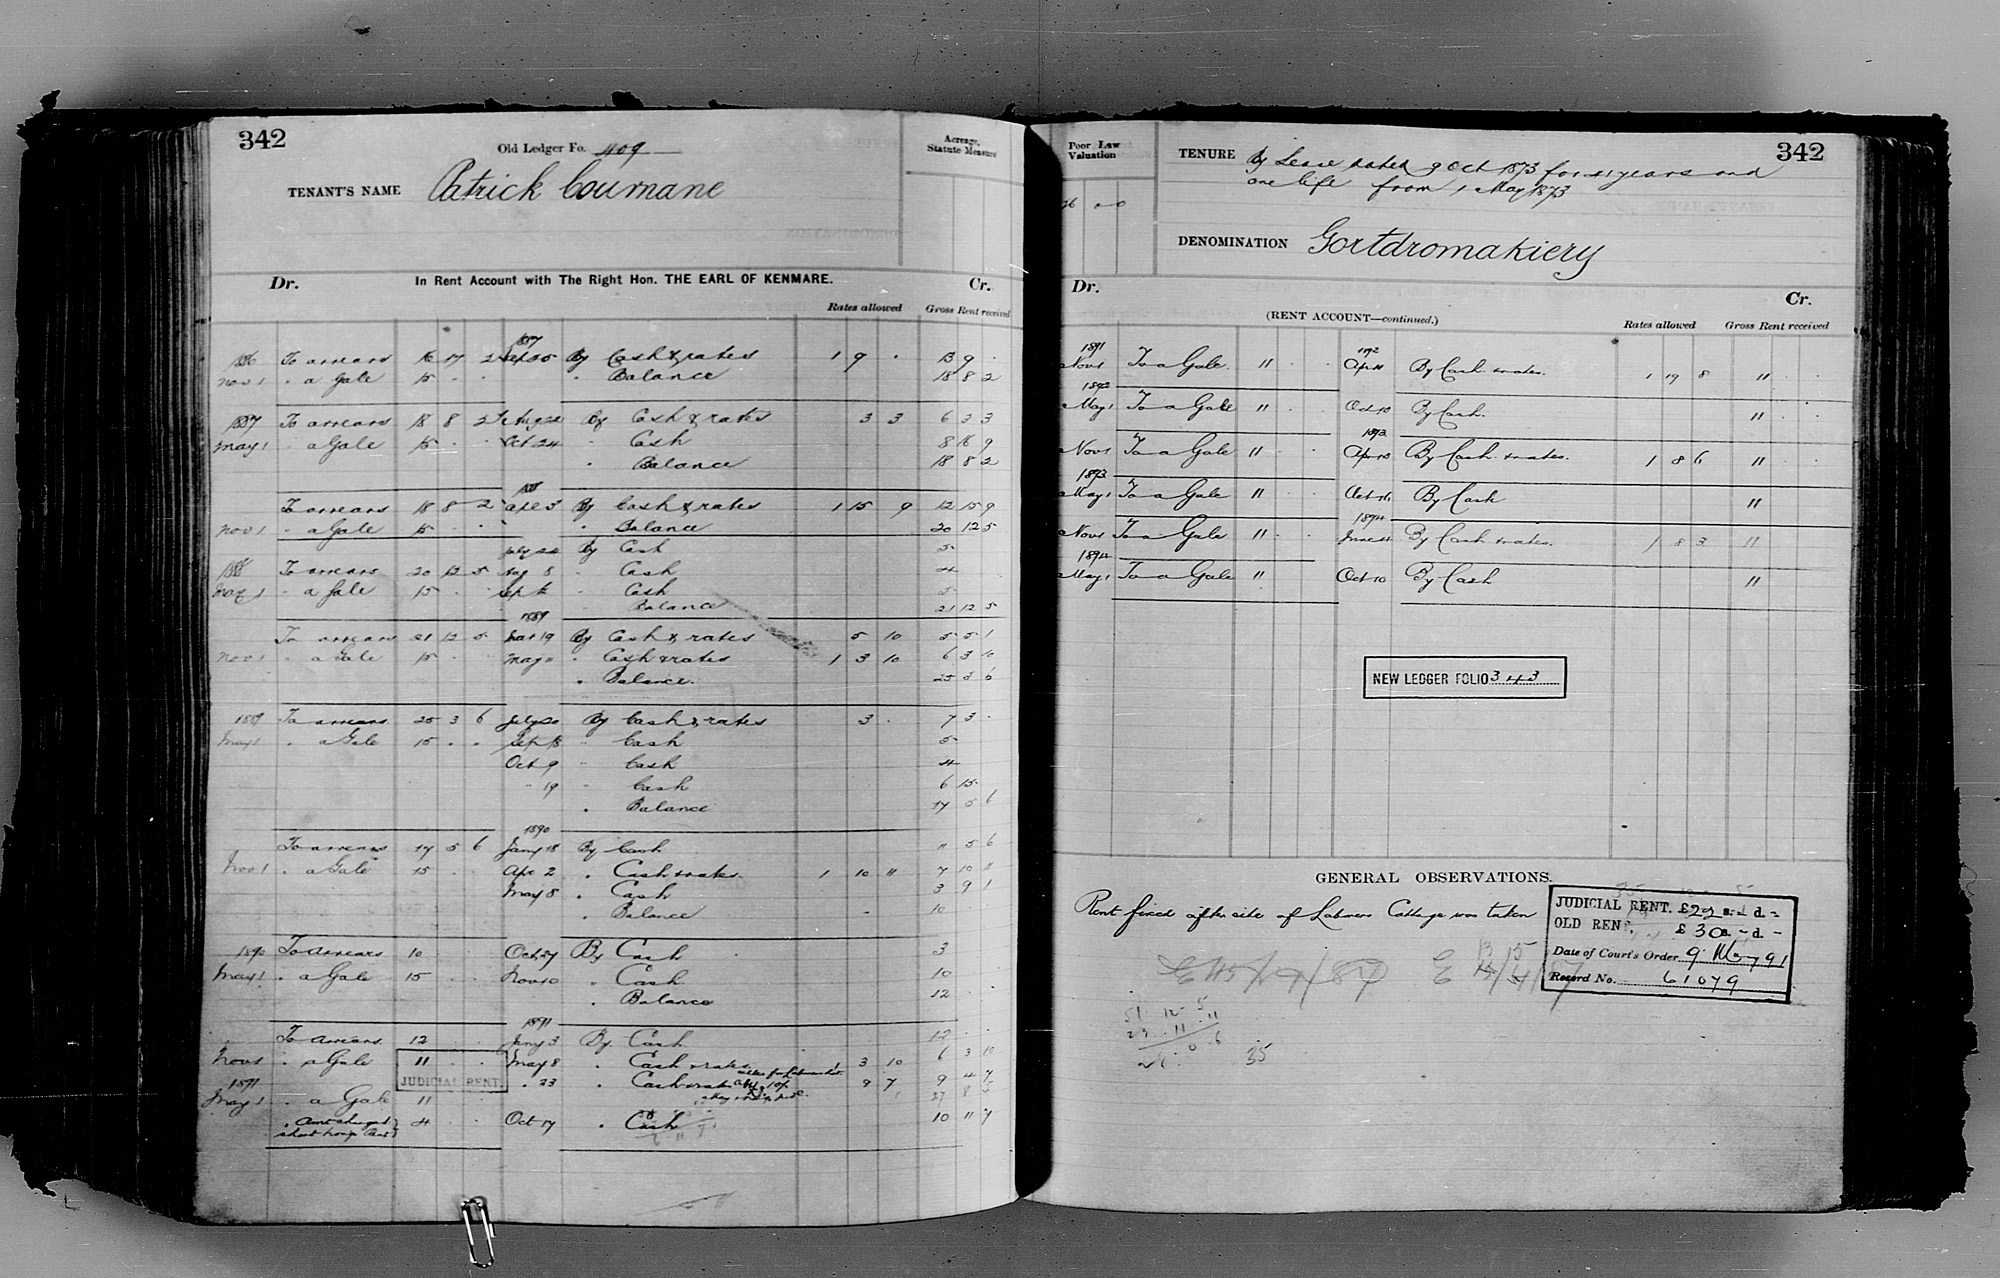 342
Old Ledger Fo. 409
Acreage,
Statute Measure
TENANT'S NAME Patrick Cournane
In Rent Account with The Right Hon. THE EARL OF KENMARE.
Dr. Cr.
Rates allowed Gross Rent received
1887
1886 To arrears 16 17 2 By Cash & rates 1 9 . 13 9 .
Nov 1 . a Gale 15 . . Balance 18 8 2
1887 To arrears 18 8 2 Aug 22 By Cash & rates 3 3 6 3 3
May 1 . a Gale 15 . . Oct 24 Cash 8 16 9
Balance 18 8 2
1888
To arrears 18 8 2 Apl 3 By Cash & rates 1 15 9 12 15 9
Nov 1 . a Gale 15 . . Balance 20 12 5
July 24 By Cash 5
1888 To arrears 20 12 5 Aug 8 Cash 4
May 1 . a Gale 15 . . Sept Cash 5
Balance 21 12 5
1889
To arrears 21 12 5 Mar 19 By Cash & rates 5 10 5 5 1
Nov 1 . a Gale 15 . May 11 . Cash & rates 1 3 10 6 3 10
. Balance. 25 3 6
1889 To arrears 25 3 6 July 20 By Cash & rates 3 . 7 3 .
May 1 . a Gale 15 . . Sept 18 Cash 5
Oct 9 Cash 4
" 19 Cash 6 15
. Balance 17 5 6
1890
To arrears 17 5 6 Jany 18 By Cash 11 5 6
Nov 1 . a Gale 15 . Apr 2 . Cash & rates. 1 10 11 7 10 11
May 8 . Cash 3 9 1
. Balance 10
1890 To arrears 10 Oct 27 By Cash 3
May 1 . a Gale 15 . . Nov 10 . Cash 10
. Balance 12 . .
1891
To arrears 12 Jany 3 By Cash 12 . .
Nov 1 . a Gale 11 . . May 8 . Cash & rates 1 3 10 6 3 10
JUDICIAL RENT.
1891 . 23 . Cash & rates 9 7 9 4 7
May 1 . a Gale 11
. Amt charged 4 . . Oct 17 . Cash 10 11 7
342
Poor Law
Valuation
26 0 0
TENURE By Lease dated 9 Oct 1873 for 21 years and
one life from 1 May 1873
DENOMINATION Gortdromakiery
Dr. Cr.
(RENT ACCOUNT—continued.)
Rates allowed Gross Rent received
1891 1892
Nov 1 To a Gale. 11 . . Apr 11 By Cash & rates. 1 19 8 11 . .
1892
May 1 To a Gale 11 . . Oct 10 By Cash. 11 . .
1893
Nov 1 To a Gale 11 . . Apr 10 By Cash & rates. 1 8 6 11 . .
1893
May 1 To a Gale 11 . . Oct 16 By Cash 11
1894
Nov 1 To a Gale 11 . . June 11 By Cash & rates. 1 8 3 11
1894
May 1 To a Gale 11 Oct 10 By Cash 11
NEW LEDGER FOLIO 343
GENERAL OBSERVATIONS.
Rent fixed after site of Labourers Cottage was taken
JUDICIAL RENT. £22 s. - d. -
OLD RENT, £30 s. - d. -
Date of Court's Order 9 May 91
Record No. 61079
51 . 12 . 5
35